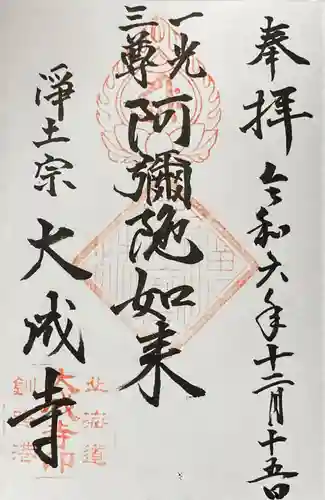 奉拝
令和六年十二月十五日
一光
三尊
阿彌陀如来
淨土宗
大成寺
北海道
大成寺印
釧路港